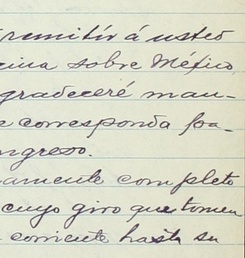 remitir á usted
cina sobre México,
gradeceré man-
e corresponda pa-
ngreso.
amente completo
cuyo giro que tomen
corriente hasta su